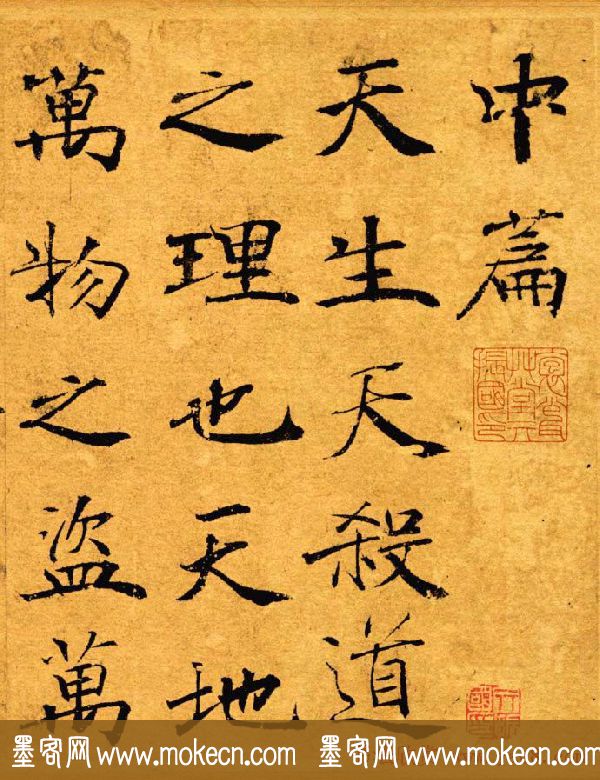 中篇
天生天殺道
之理也天地
萬物之盜萬
墨客网 www.mokecn.com 墨客网 www.mokecn.com